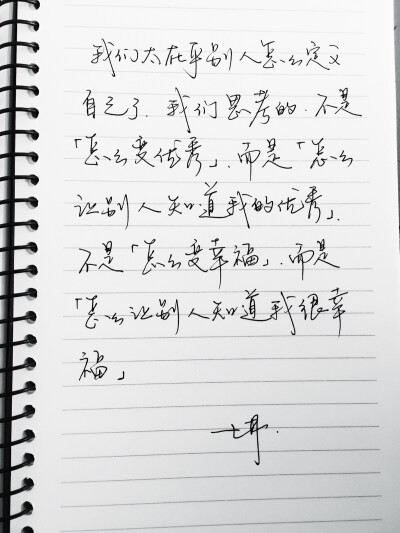 我们太在乎别人怎么定义
自己了. 我们思考的. 不是
「怎么变优秀」. 而是「怎么
让别人知道我的优秀」.
不是「怎么变幸福」. 而是
「怎么让别人知道我很幸
福」